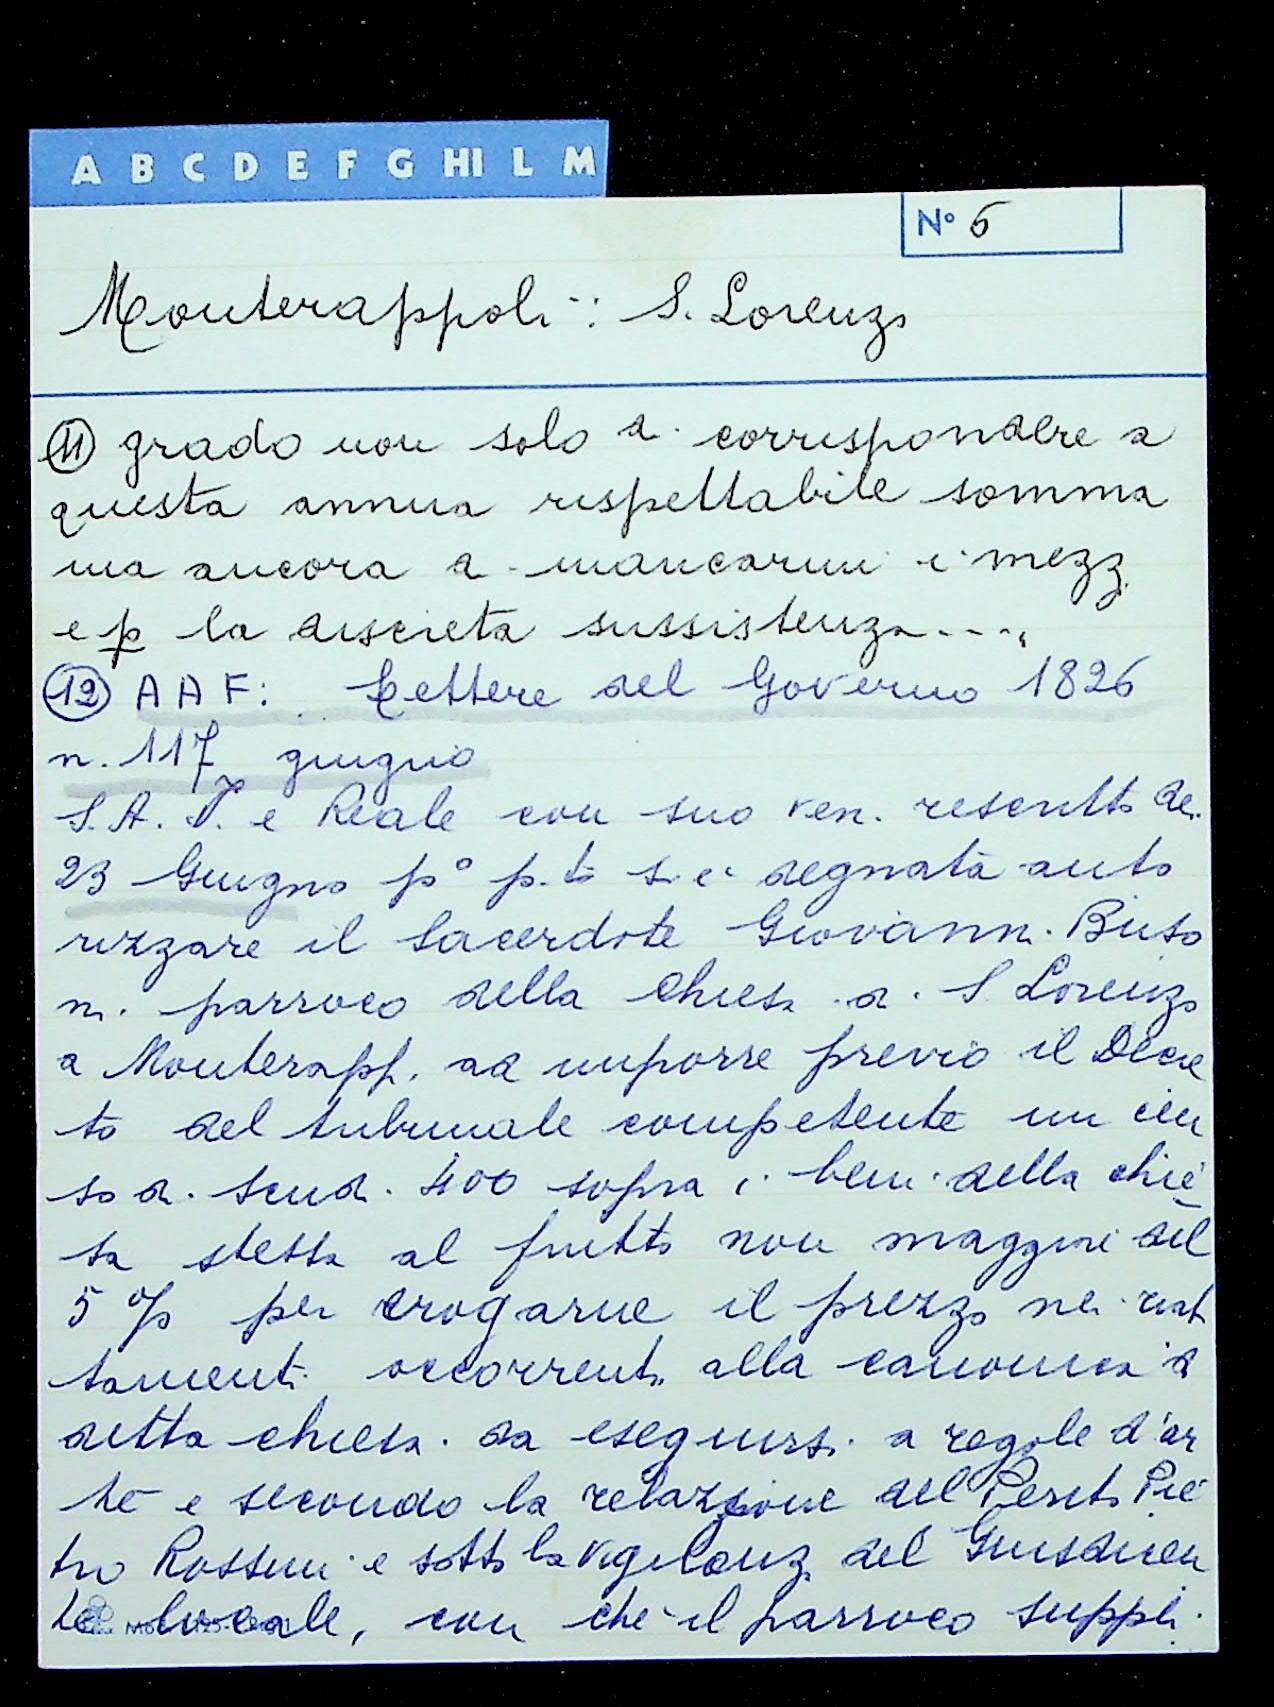 A B C D E F G HI L M
N° 5
Monterappoli: S. Lorenzo
(11) grado non solo di corrispondere a
questa annua rispettabile somma
ma ancora a mancarmi i mezzi
e p la discreta sussistenza....,
(12) A A F: Lettere del Governo 1826
n. 117 giugno
S. A. I. e Reale con suo ven. rescritto dei
23 Giugno p° p.to si è degnata auto
rizzare il Sacerdote Giovanni Buso
ni parroco della Chiesa di S Lorenzo
a Monterapp. ad imporre previo il Decre
to del tribunale competente un cen
so di scudi 400 sopra i beni della chie
sa stessa al frutto non maggiore del
5 % per erogarne il prezzo nei riat
tamenti occorrenti alla canonica di
detta chiesa da eseguirsi a regole d'ar
te e secondo la relazione del Perito Pie
tro Rossini e sotto la vigilanza del Giusdicen
te locale, con che il parroco suppli